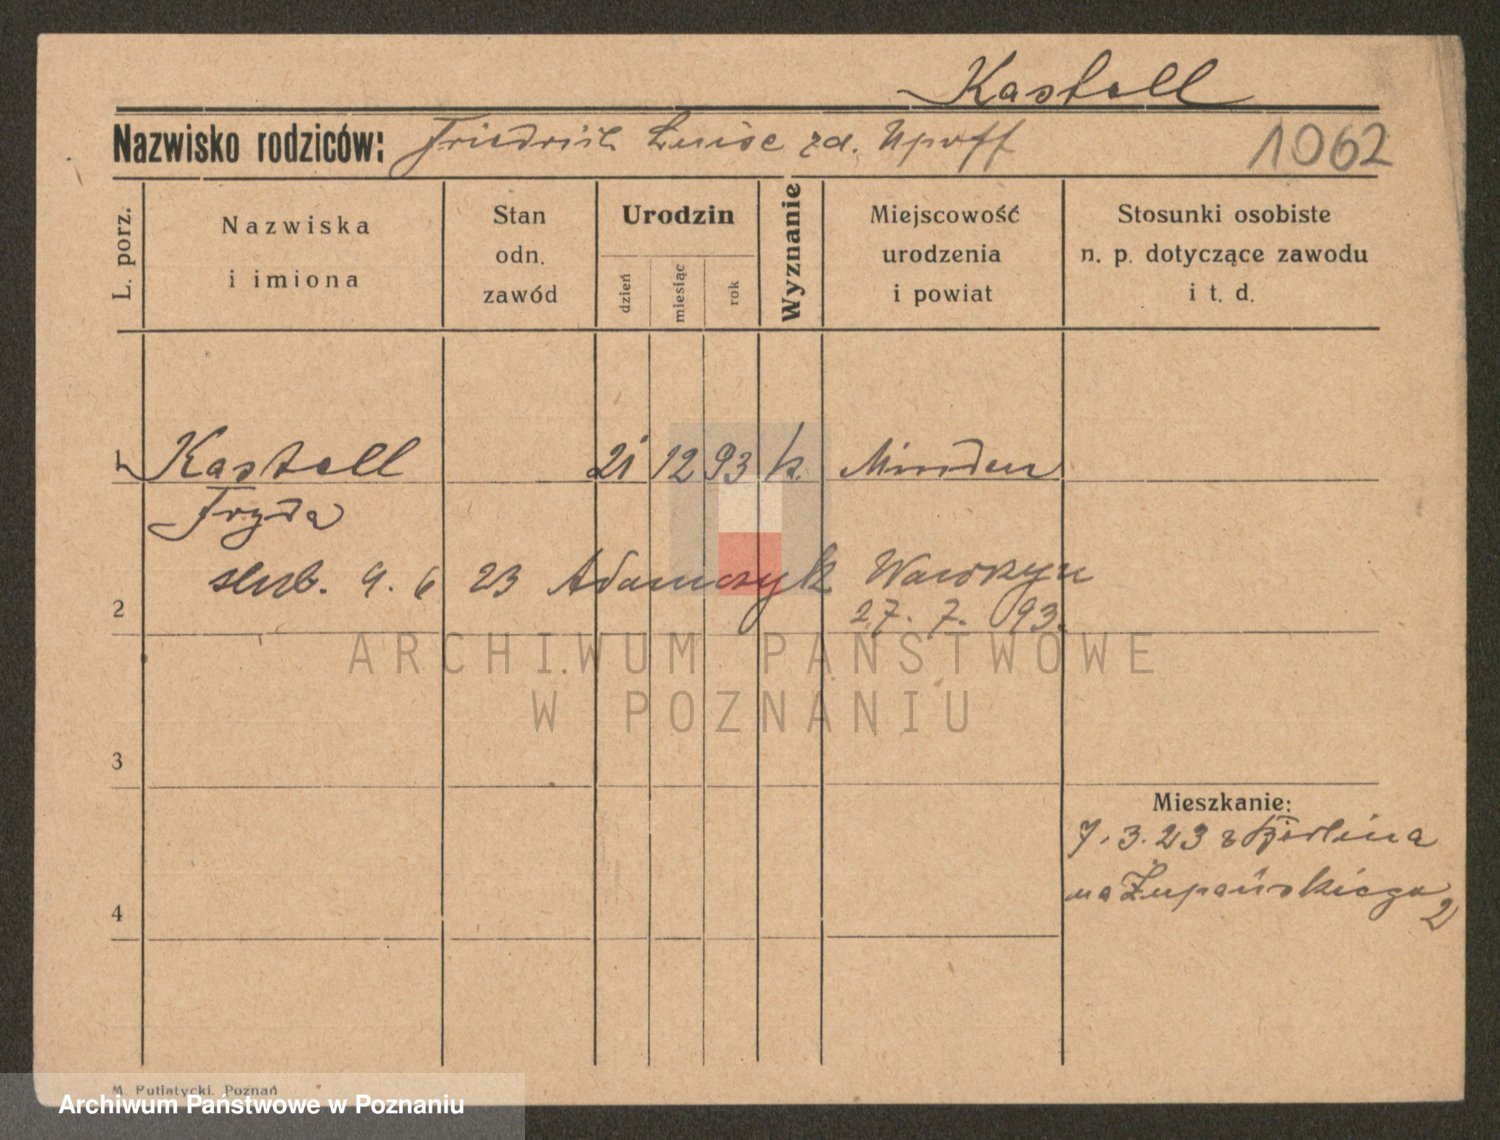 Kastell
Nazwisko rodziców: Friedrich Luise zd. Npoff 1062
L. porz.
Nazwiska
i imiona
Stan
odn.
zawód
Urodzin
dzień
miesiąc
rok
Wyznanie
Miejscowość
urodzenia
i powiat
Stosunki osobiste
n. p. dotyczące zawodu
i t. d.
1 Kastell 21 12 93 k. Minden
Fryda
slub. 9. 6 23 Adamczyk Wawrzyn
27. 7. 93.
2
ARCHIWUM PAŃSTWOWE
W POZNANIU
3
Mieszkanie:
7. 3. 23 z Berlina
na Żupańskiego
2
4
M. Putiatycki, Poznań
Archiwum Państwowe w Poznaniu